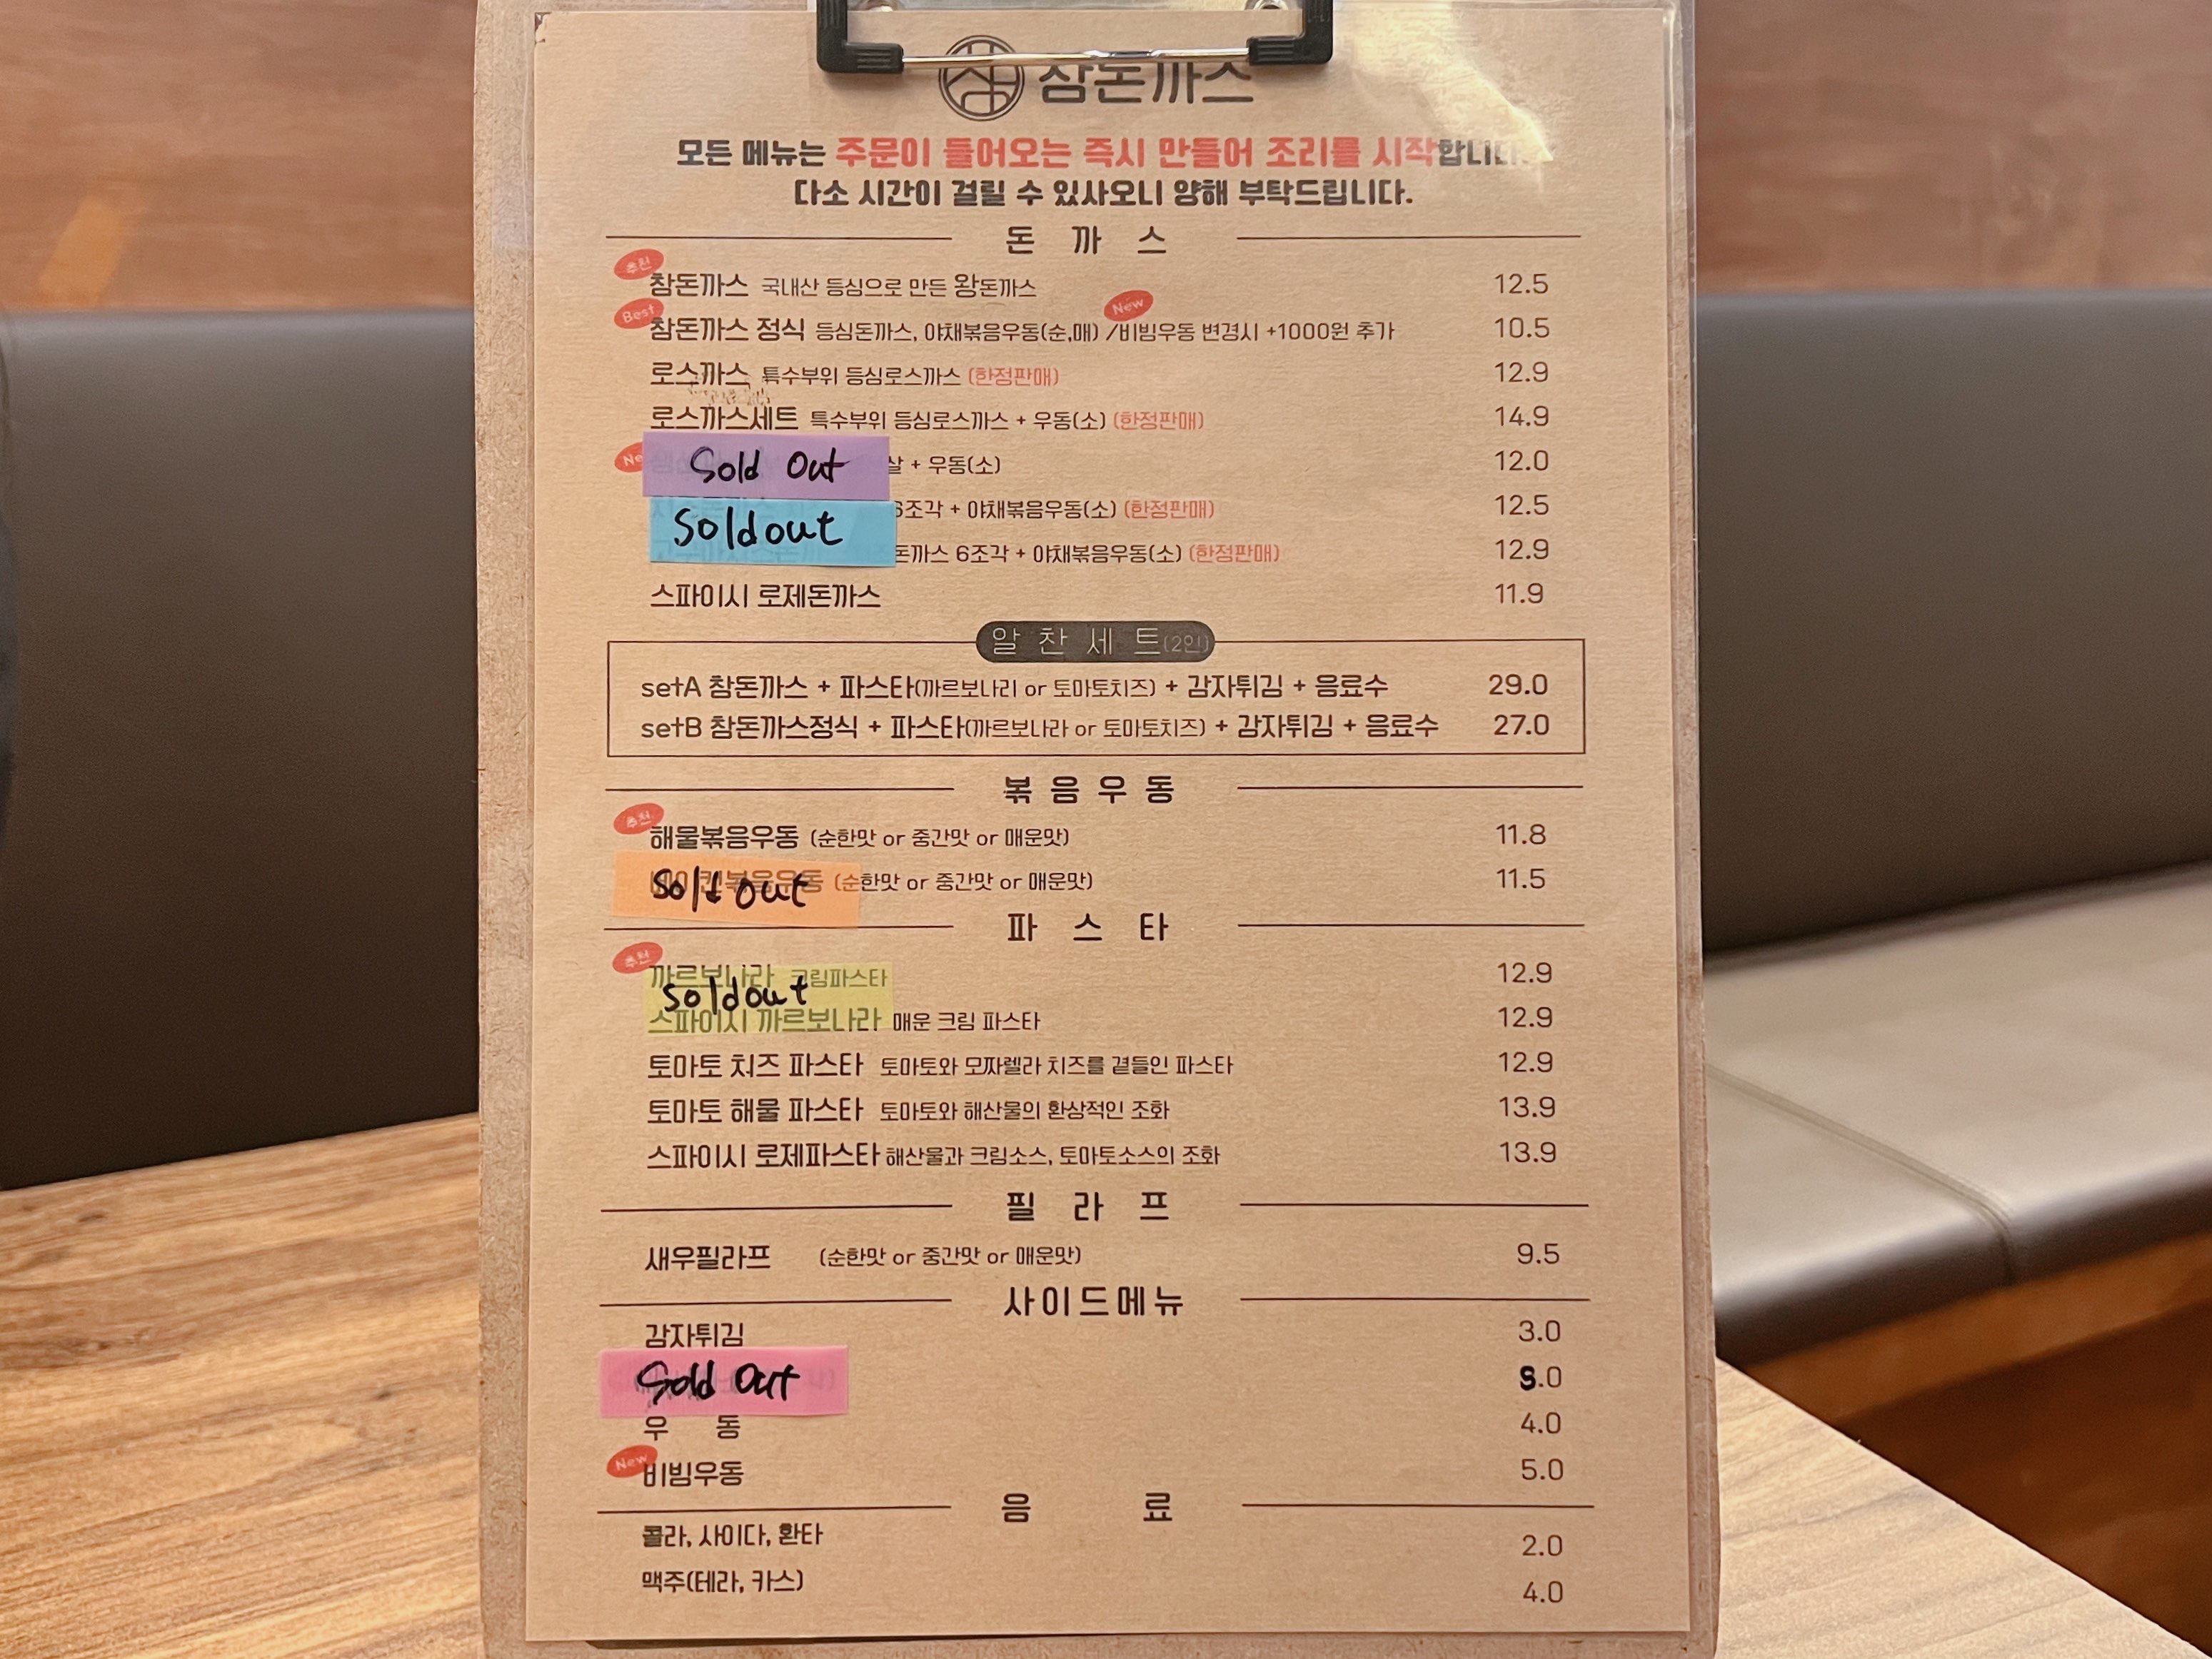 참돈까스
모든 메뉴는 주문이 들어오는 즉시 만들어 조리를 시작합니다.
다소 시간이 걸릴 수 있사오니 양해 부탁드립니다.
돈 까 스
추천
참돈까스 국내산 등심으로 만든 왕돈까스 12.5
Best New
참돈까스 정식 등심돈까스, 야채볶음우동(순,매) /비빔우동 변경시 +1000원 추가 10.5
로스까스 특수부위 등심로스까스 (한정판매) 12.9
로스까스세트 특수부위 등심로스까스 + 우동(소) (한정판매) 14.9
Sold Out 살 + 우동(소) 12.0
Soldout 6조각 + 야채볶음우동(소) (한정판매) 12.5
돈까스 6조각 + 야채볶음우동(소) (한정판매) 12.9
스파이시 로제돈까스 11.9
알 찬 세 트(2인)
setA 참돈까스 + 파스타(까르보나리 or 토마토치즈) + 감자튀김 + 음료수 29.0
setB 참돈까스정식 + 파스타(까르보나라 or 토마토치즈) + 감자튀김 + 음료수 27.0
볶 음 우 동
추천
해물볶음우동 (순한맛 or 중간맛 or 매운맛) 11.8
Sold out 볶음우동 (순한맛 or 중간맛 or 매운맛) 11.5
파 스 타
추천
까르보나라 크림파스타 12.9
Soldout
스파이시 까르보나라 매운 크림 파스타 12.9
토마토 치즈 파스타 토마토와 모짜렐라 치즈를 곁들인 파스타 12.9
토마토 해물 파스타 토마토와 해산물의 환상적인 조화 13.9
스파이시 로제파스타 해산물과 크림소스, 토마토소스의 조화 13.9
필 라 프
새우필라프 (순한맛 or 중간맛 or 매운맛) 9.5
사이드메뉴
감자튀김 3.0
Sold Out 5.0
우 동 4.0
New
비빔우동 5.0
음 료
콜라, 사이다, 환타 2.0
맥주(테라, 카스) 4.0